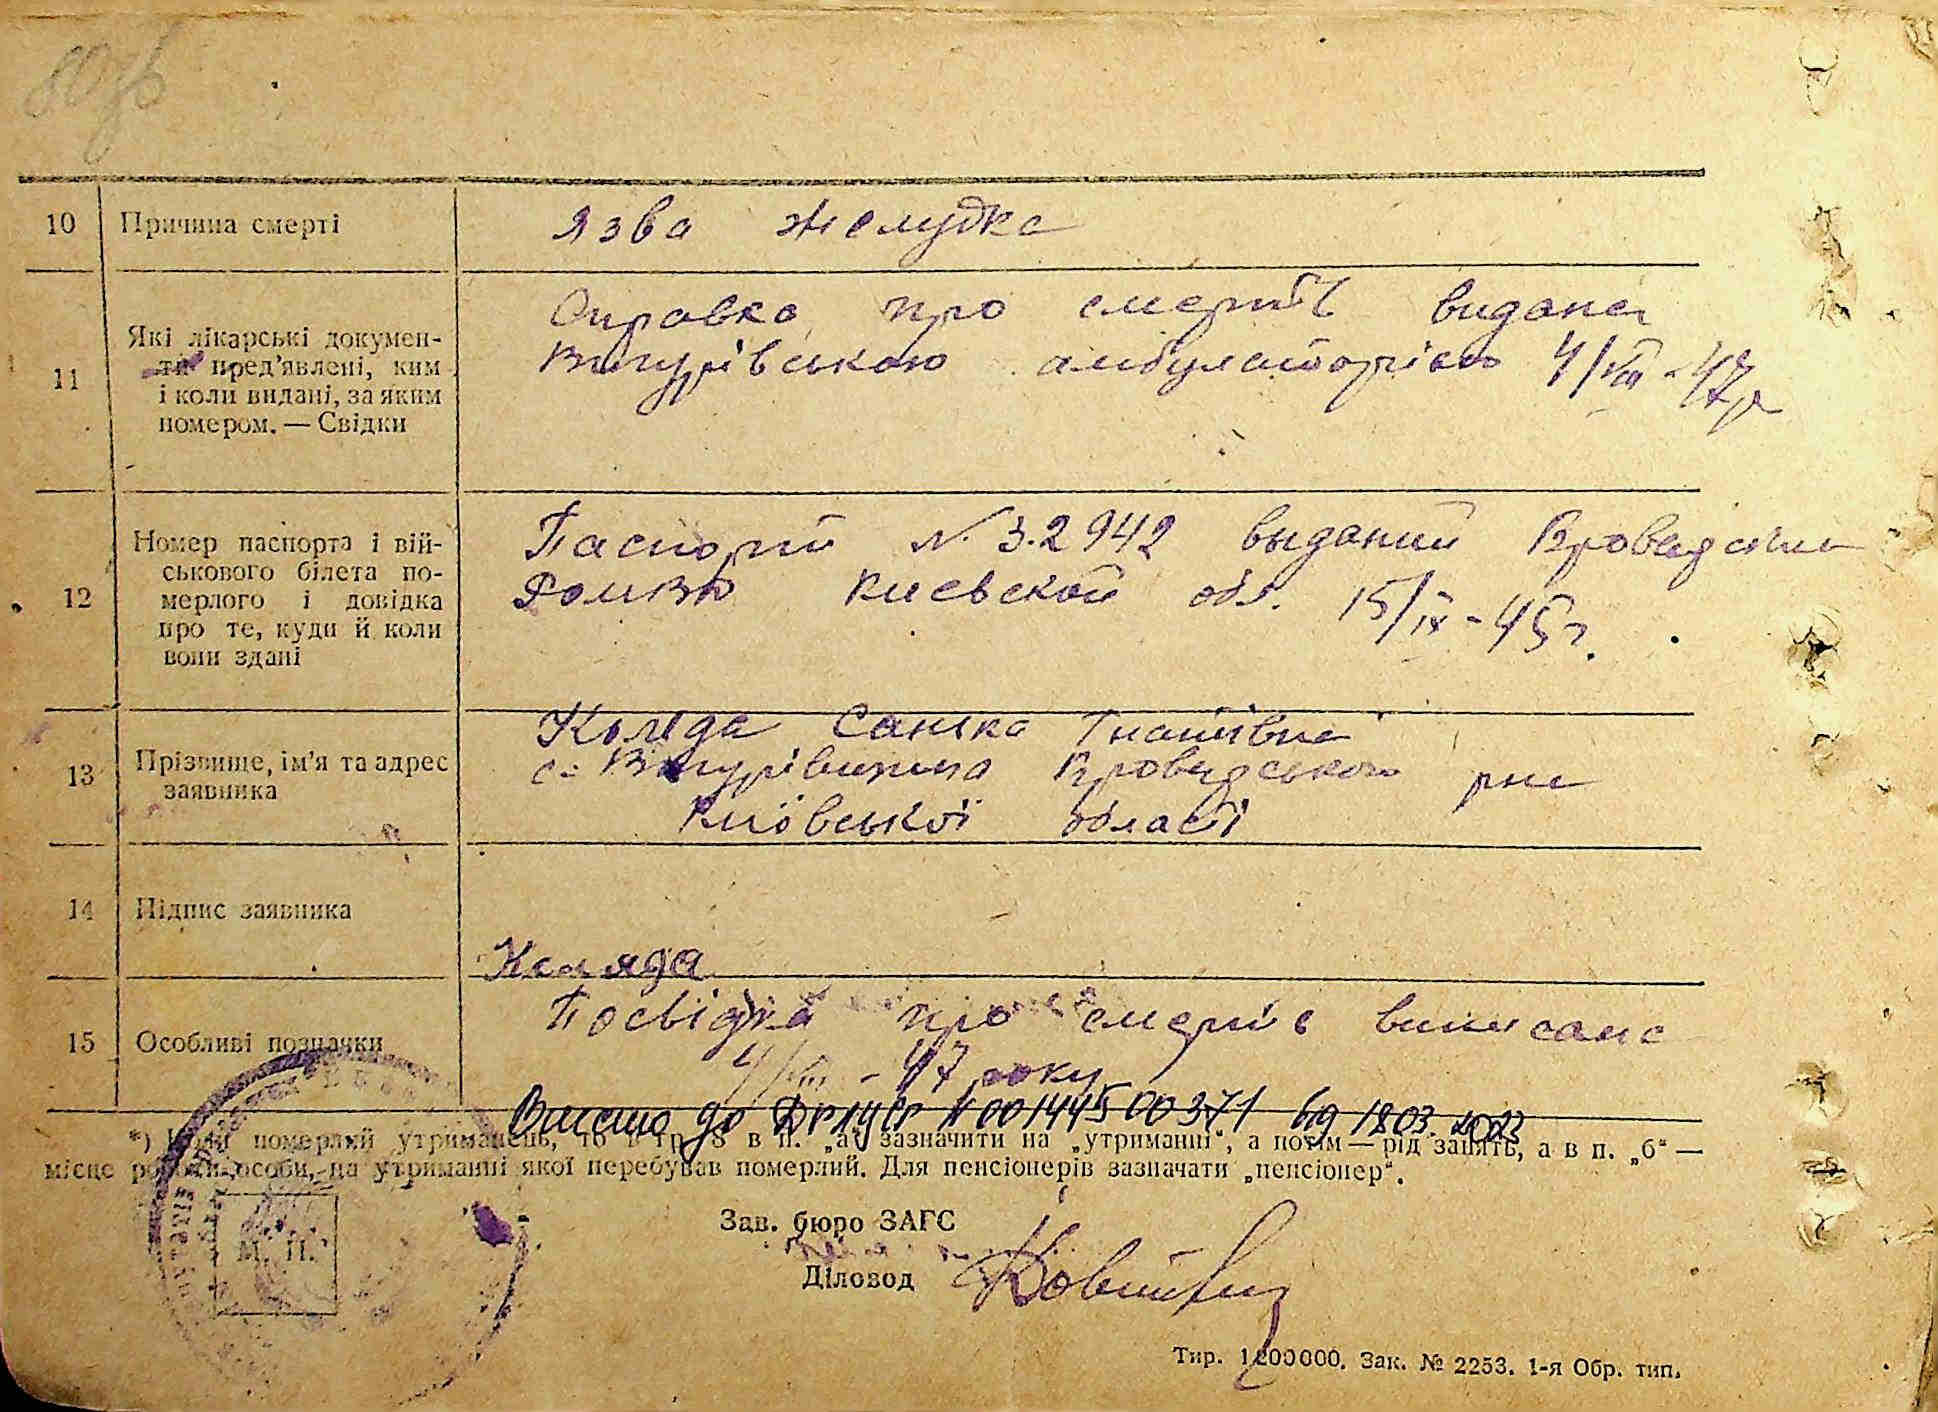 80 зв
10 Причина смерті
Язва желудка
11 Які лікарські докумен-
ти пред'явлені, ким
і коли видані, за яким
номером. — Свідки
Справка про смерть видана
Вигурівською амбулаторією 4/VIII-47р
12 Номер паспорта і вій-
ськового білета по-
мерлого і довідка
про те, куди й коли
вони здані
Паспорт N. 3.2942 выданий Броварским
РОМВД Киевской обл. 15/IX-45г.
13 Прізвище, ім'я та адрес
заявника
Коляда Санька Гнатівна
с. Вигурівщина Броварського рна
Київської області
14 Підпис заявника
Коляда
15 Особливі позначки
Посвідка про смерть виписана
4/VIII-47 року
Внесено до ДРАЦСГ N 00144500371 від 18.03.2023
*) Коли померлий утриманець, то в гр. 8 в п. „а“ зазначити на „утриманні“, а потім — рід занять, а в п. „б“ —
місце роботи особи, на утриманні якої перебував померлий. Для пенсіонерів зазначати „пенсіонер“.
М. П.
Зав. бюро ЗАГС
Діловод
Тир. 1200000. Зак. № 2253. 1-я Обр. тип.